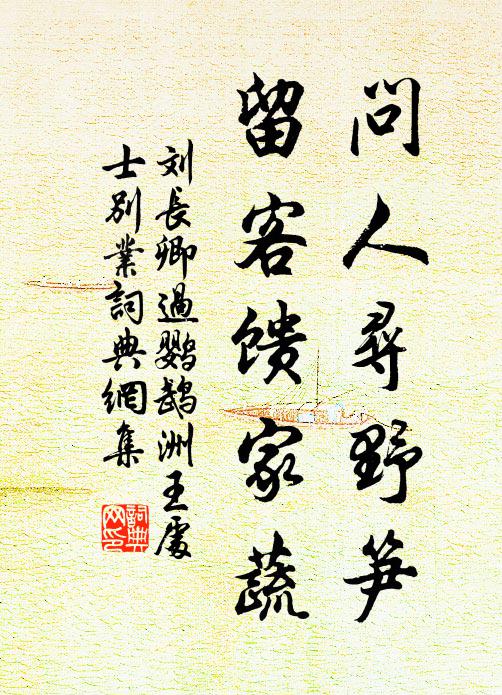 問人尋野笋
留客馈家蔬
刘長卿過鹦鵡洲王處
士別業詞典網集
詞典
网印